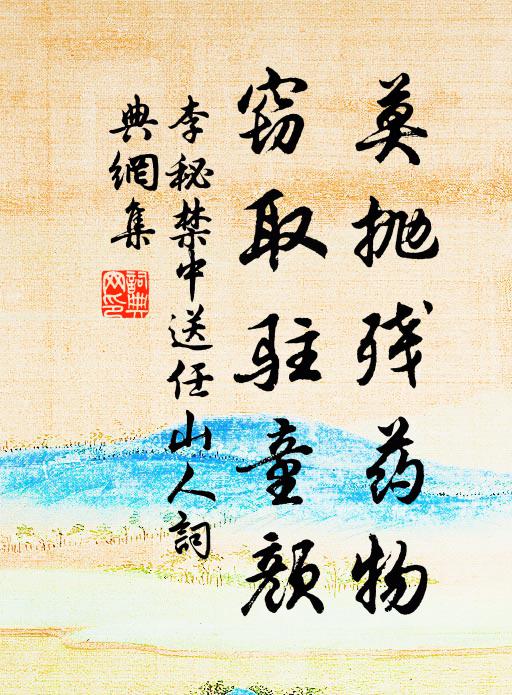 莫抛残药物
窃取驻童颜
李秘禁中送任山人詞
典網集
詞典
网印